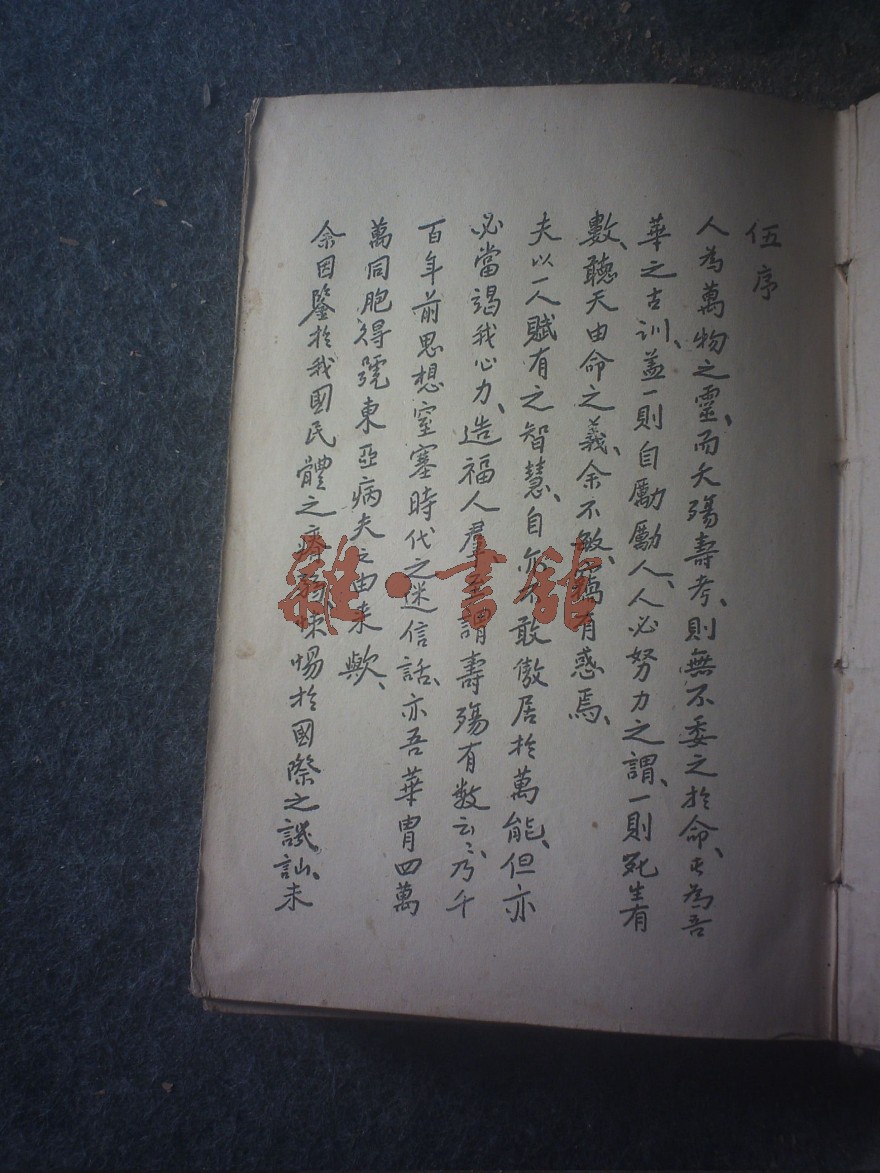 伍序
人為萬物之靈、而夭殤壽考、則無不委之於命、此為吾
華之古訓、蓋一則自勵勵人、人必努力之謂、一則死生有
數、聽天由命之義、余不敏、竊有惑焉、
夫以一人賦有之智慧、自亦不敢傲居於萬能、但亦
必當竭我心力、造福人羣、至謂壽殤有数云云、乃千
百年前思想窒塞時代之迷信話、亦吾華胄四萬
萬同胞得號東亞病夫之由來歟、
余因鑒於我國民體之瘠弱、悚惕於國際之譏訕、未
雜·書館